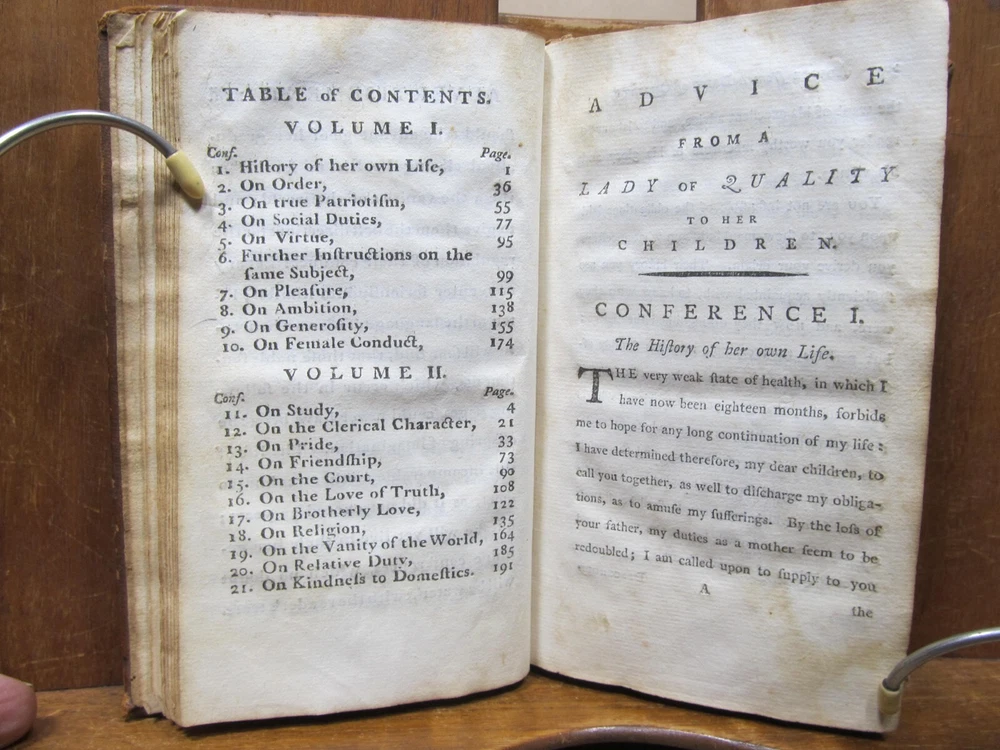 TABLE of CONTENTS.
VOLUME I.
Conf. Page.
1. Hiſtory of her own Life, 1
2. On Order, 36
3. On true Patriotiſm, 55
4. On Social Duties, 77
5. On Virtue, 95
6. Further Inſtructions on the
ſame Subject, 99
7. On Pleaſure, 115
8. On Ambition, 138
9. On Generoſity, 155
10. On Female Conduct, 174
VOLUME II.
Conf. Page.
11. On Study, 4
12. On the Clerical Character, 21
13. On Pride, 33
14. On Friendſhip, 73
15. On the Court, 90
16. On the Love of Truth, 108
17. On Brotherly Love, 122
18. On Religion, 135
19. On the Vanity of the World, 164
20. On Relative Duty, 185
21. On Kindneſs to Domeſtics. 191
ADVICE
FROM A
LADY OF QUALITY
TO HER
CHILDREN.
CONFERENCE I.
The Hiſtory of her own Life.
THE very weak ſtate of health, in which I
have now been eighteen months, forbids
me to hope for any long continuation of my life:
I have determined therefore, my dear children, to
call you together, as well to diſcharge my obliga-
tions, as to amuſe my ſufferings. By the loſs of
your father, my duties as a mother ſeem to be
redoubled; I am called upon to ſupply to you
A
the